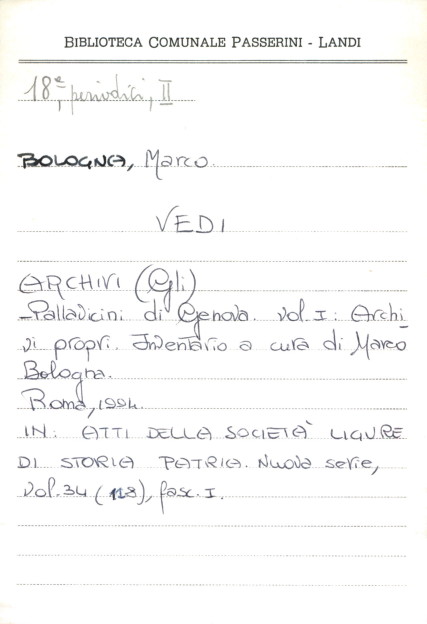 BIBLIOTECA COMUNALE PASSERINI - LANDI
18ª, periodici, II
BOLOGNA, Marco.
VEDI
ARCHIVI (Gli)
Pallavicini di Genova. vol. I: Archi
vi propri. Inventario a cura di Marco
Bologna.
Roma, 1994.
IN: ATTI DELLA SOCIETÀ LIGURE
DI STORIA PATRIA. Nuova serie,
vol. 34 (118), fasc. I.